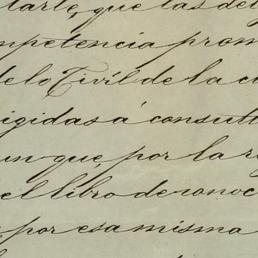 tarte, que las de
mpetencia prom
delo Civil de la c
igidas á consult
un que, por la r
el libro de conoc
por esa misma